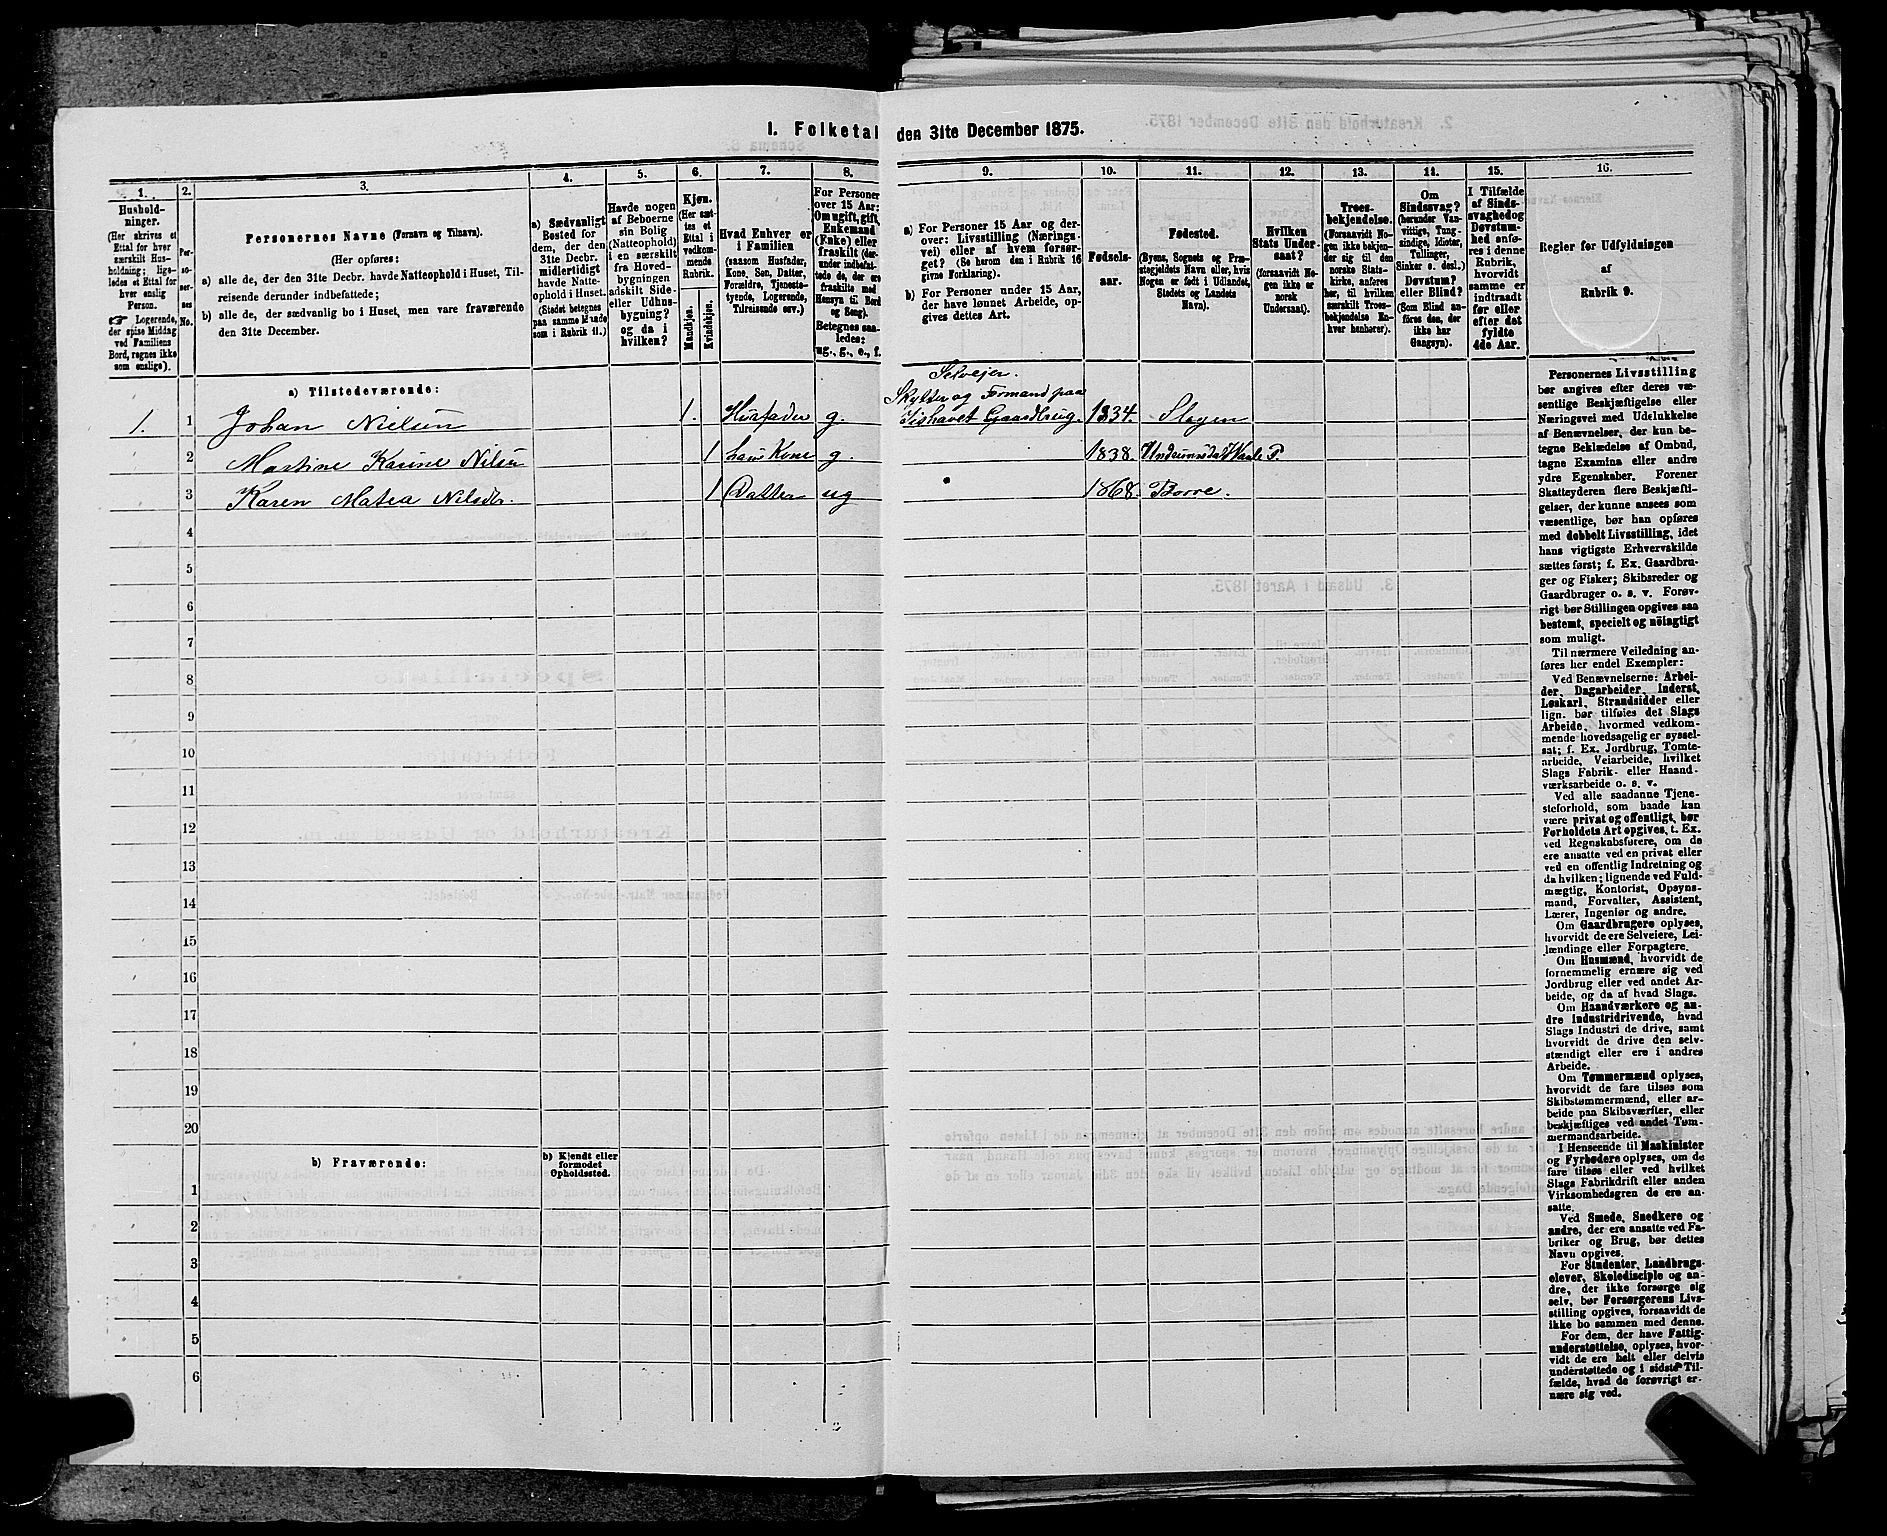 1. Folketal den 31te December 1875.
1.
2.
3.
4.
5.
6.
7.
8.
9.
10.
11.
12.
13.
14.
15.
16.
Hushold-
ninger.
(Her skrives et
Ettal for hver
særskilt Hus-
holdning; lige-
ledes et Ettal for
hver enslig
Person.
Logerende,
der spise Middag
ved Familiens
Bord, regnes ikke
som enslige).
Per-
so-
ner-
nes
No.
Personernes Navne (Fornavn og Tilnavn).
(Her opføres:
a) alle de, der den 31te Decbr. havde Natteophold i Huset, Til-
reisende derunder indbefattede;
b) alle de, der sædvanlig bo i Huset, men vare fraværende
den 31te December.
a) Sædvanligt
Bosted for
dem, der den
31te Decbr.
midlertidigt
havde Natte-
ophold i Huset.
(Stedet betegnes
paa samme Maade
som i Rubrik 11.)
Havde nogen
af Beboerne
sin Bolig
(Natteophold)
i en særskilt
fra Hoved-
bygningen
adskilt Side-
eller Udhus-
bygning?
og da i
hvilken?
Kjøn.
(Her sæt-
tes et
Ettal i
vedkom-
mende
Rubrik.
Mandkjøn.
Kvindekjøn.
Hvad Enhver er
i Familien
(saasom Husfader,
Kone, Søn, Datter,
Forældre, Tjeneste-
tyende, Logerende,
Tilreisende osv.)
For Personer
over 15 Aar:
Om ugift, gift,
Enkemand
(Enke) eller
fraskilt (der-
under indbefat-
tede de, der ere
fraskilte med
Hensyn til Bord
og Seng).
Betegnes saa-
ledes:
ug., g., e., f.
a) For Personer 15 Aar og der-
over: Livsstilling (Nærings-
vei) eller af hvem forsør-
get? (Se herom den i Rubrik 16
givne Forklaring).
b) For Personer under 15 Aar,
der have lønnet Arbeide, op-
gives dettes Art.
Fødsels-
aar.
Fødested.
(Byens, Sognets og Præ-
stegjeldets Navn eller, hvis
Nogen er født i Udlandet,
Stedets og Landets
Navn).
Hvilken
Stats Under-
saat?
(forsaavidt No-
gen ikke er
norsk
Undersaat).
Troes-
bekjendelse.
(Forsaavidt No-
gen ikke bekjen-
der sig til den
norske Stats-
kirke, anføres
her, til hvilken
særskilt Troes-
bekjendelse En-
hver henhører).
Om
Sindssvag?
(herunder Van-
vittige, Tung-
sindige, Idioter,
Tullinger,
Sinker o. desl.)
Døvstum?
eller Blind?
(Som Blind an-
føres den, der
ikke har
Gangsyn).
I Tilfælde
af Sinds-
svaghed og
Døvstum-
hed anfø-
res i denne
Rubrik,
hvorvidt
samme er
indtraadt
før eller
efter det
fyldte
4de Aar.
Regler for Udfyldningen
af
Rubrik 9.
a) Tilstedeværende:
Selveier.
Skytter og Formand paa
1. 1 Johan Nielsen 1. Husfader g. Ishavet Gaardbrug. 1834. Slagen
2 Martine Karine Nilsen 1 hans Kone g. 1838. Undrumsdal Vaale P.
3 Karen Matea Nilsdtr. 1 Datter ug 1868. Borre.
4
5
6
7
8
9
10
11
12
13
14
15
16
17
18
19
20
b) Fraværende:
b) Kjendt eller
formodet
Opholdssted.
1
2
3
4
5
6
Personernes Livsstilling
bør angives efter deres væ-
sentlige Beskjæftigelse eller
Næringsvei med Udelukkelse
af Benævnelser, der kun be-
tegne Beklædelse af Ombud,
tagne Examina eller andre
ydre Egenskaber. Forener
Skatteyderen flere Beskjæfti-
gelser, der kunne ansees som
væsentlige, bør han opføres
med dobbelt Livsstilling, idet
hans vigtigste Erhvervskilde
sættes først; f. Ex. Gaardbru-
ger og Fisker; Skibsreder og
Gaardbruger o. s. v. Forøv-
rigt bør Stillingen opgives saa
bestemt, specielt og nöiagtigt
som muligt.
Til nærmere Veiledning an-
føres her endel Exempler:
Ved Benævnelserne: Arbei-
der, Dagarbeider, Inderst,
Løskarl, Strandsidder eller
lign. bør tilføies det Slags
Arbeide, hvormed vedkom-
mende hovedsagelig er syssel-
sat; f. Ex. Jordbrug, Tomte-
arbeide, Veiarbeide, hvilket
Slags Fabrik- eller Haand-
værksarbeide o. s. v.
Ved alle saadanne Tjene-
steforhold, som baade kan
være privat og offentligt, bør
Forholdets Art opgives, t. Ex.
ved Regnskabsførere, om de
ere ansatte ved en privat eller
ved en offentlig Indretning og
da hvilken; lignende ved Fuld-
mægtig, Kontorist, Opsyns-
mand, Forvalter, Assistent,
Lærer, Ingeniør og andre.
Om Gaardbrugere oplyses,
hvorvidt de ere Selveiere, Lei-
lændinge eller Forpagtere.
Om Husmænd, hvorvidt de
fornemmelig ernære sig ved
Jordbrug eller ved andet Ar-
beide, og da af hvad Slags.
Om Haandværkere og an-
dre industridrivende, hvad
Slags Industri de drive, samt
hvorvidt de drive den selv-
stændigt eller ere i andres
Arbeide.
Om Tømmermænd oplyses,
hvorvidt de fare tilsøs som
Skibstømmermænd, eller ar-
beide paa Skibsværfter, eller
beskjæftiges ved andet Tøm-
mermandsarbeide.
I Henseende til Maskinister
og Fyrbødere oplyses, om de
fare tilsøs eller ved hvilket
Slags Fabrikdrift eller anden
Virksomhedsgren de ere an-
satte.
Ved Smede, Snedkere og
andre, der ere ansatte ved Fa-
briker og Brug, bør dettes
Navn opgives.
For Studenter, Landbrugs-
elever, Skoledisciple og an-
dre, der ikke forsørge sig
selv, bør Forsørgerens Livs-
stilling opgives, forsaavidt de
ikke bo sammen med denne.
For dem, der have Fattig-
understøttelse, oplyses, hvor-
vidt de ere helt eller delvis
understøttede og i sidste Til-
fælde, hvad de forøvrigt er-
nære sig ved.